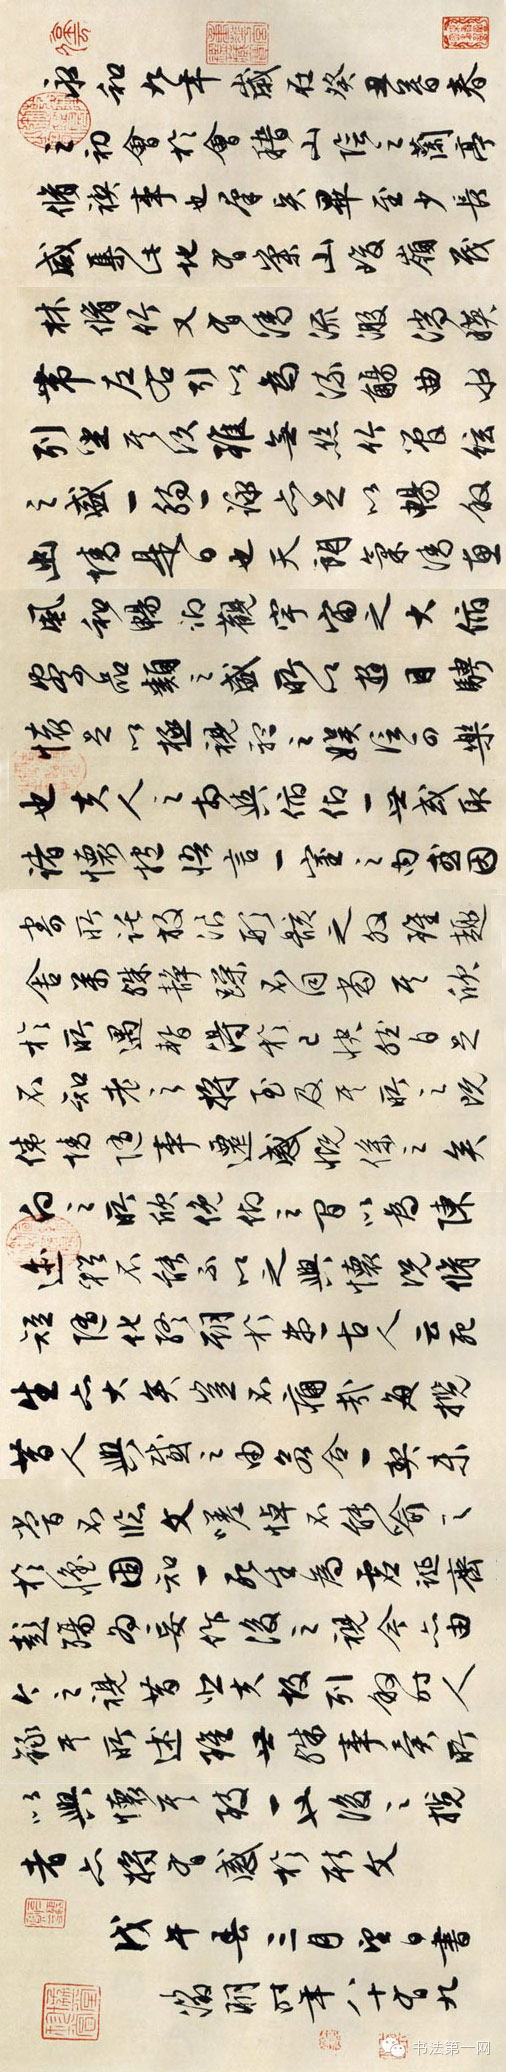 永和九年歲在癸丑暮春
之初會於會稽山陰之蘭亭
脩禊事也群賢畢至少長
咸集此地有崇山峻嶺茂
林脩竹又有清流激湍映
帶左右引以為流觴曲水
列坐其次雖無絲竹管絃
之盛一觴一詠亦足以暢敘
幽情是日也天朗氣清惠
風和暢仰觀宇宙之大俯
察品類之盛所以遊目騁
懷足以極視聽之娛信可樂
也夫人之相與俯仰一世或取
諸懷抱悟言一室之內或因
寄所託放浪形骸之外雖趣
舍萬殊靜躁不同當其欣
於所遇暫得於己快然自足
不知老之將至及其所之既
倦情隨事遷感慨係之矣
向之所欣俛仰之間以為陳
迹猶不能不以之興懷況脩
短隨化終期於盡古人云死
生亦大矣豈不痛哉每攬
昔人興感之由若合一契未
嘗不臨文嗟悼不能喻之
於懷固知一死生為虛誕齊
彭殤為妄作後之視今亦由
今之視昔悲夫故列敘時人
錄其所述雖世殊事異所
以興懷其致一也後之攬
者亦將有感於斯文
戊午春三月望日書
徵明時年八十有九
书法第一网